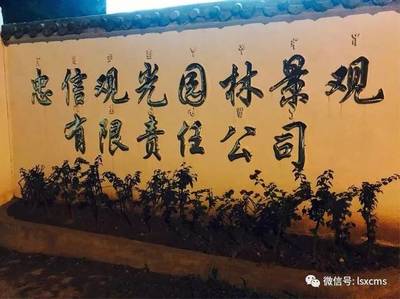 忠信观光园林景观
有限责任公司
微信号: lsxcms